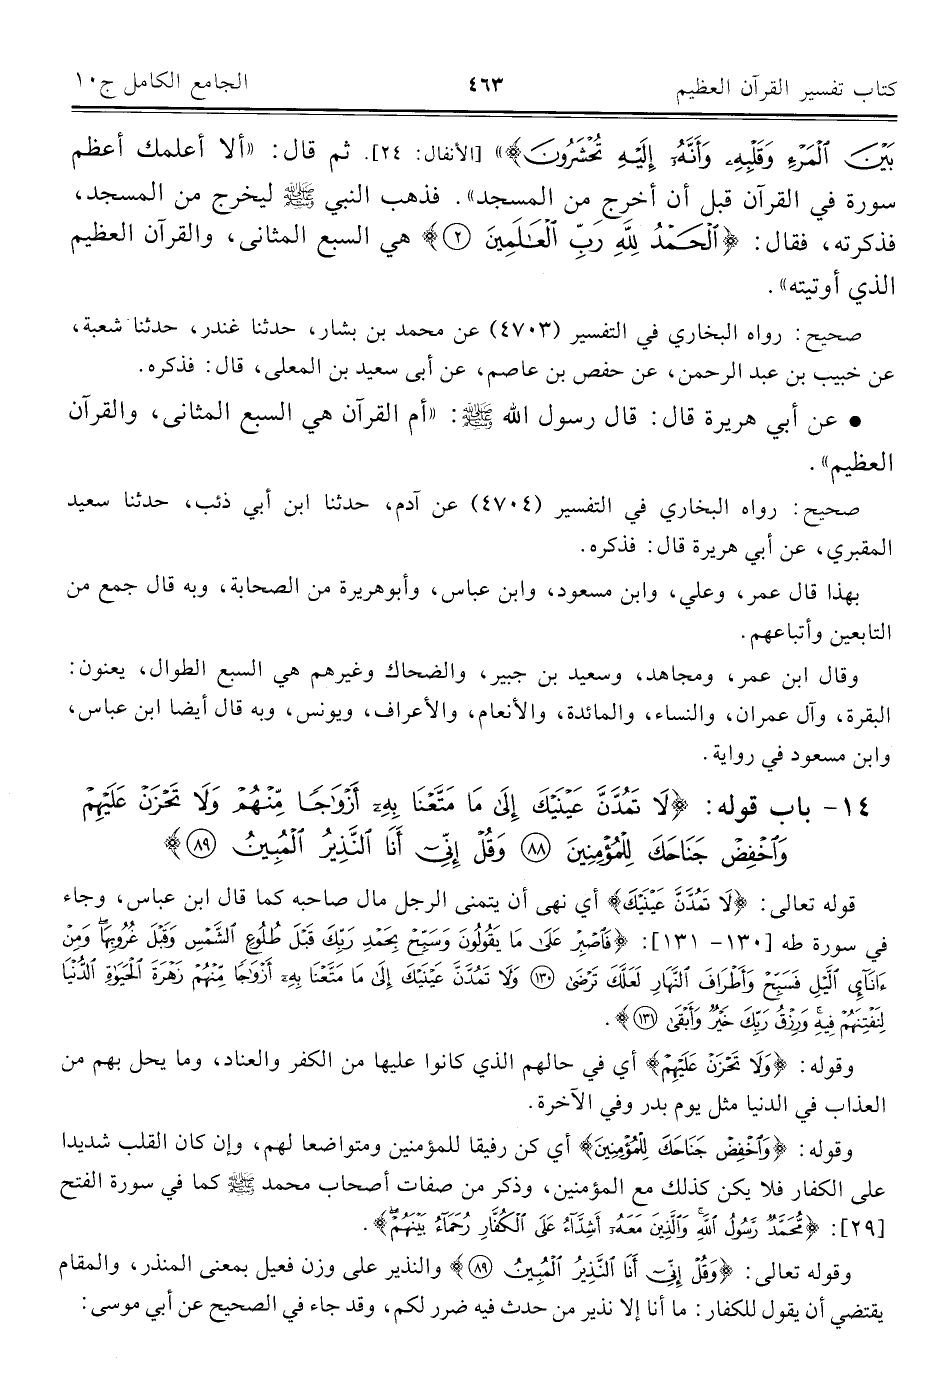 كتاب تفسير القرآن العظيم ٤٦٣ الجامع الكامل ج١٠
بَيْنَ ٱلْمَرْءِ وَقَلْبِهِۦ وَأَنَّهُۥٓ إِلَيْهِ تُحْشَرُونَ﴾» [الأنفال: ٢٤]. ثم قال: «ألا أعلمك أعظم
سورة في القرآن قبل أن أخرج من المسجد». فذهب النبي ﷺ ليخرج من المسجد،
فذكرته، فقال: ﴿ٱلْحَمْدُ لِلَّهِ رَبِّ ٱلْعَـٰلَمِينَ ٢﴾ هي السبع المثاني، والقرآن العظيم
الذي أوتيته».
صحيح: رواه البخاري في التفسير (٤٧٠٣) عن محمد بن بشار، حدثنا غندر، حدثنا شعبة،
عن خبيب بن عبد الرحمن، عن حفص بن عاصم، عن أبي سعيد بن المعلى، قال: فذكره.
• عن أبي هريرة قال: قال رسول الله ﷺ: «أم القرآن هي السبع المثاني، والقرآن
العظيم».
صحيح: رواه البخاري في التفسير (٤٧٠٤) عن آدم، حدثنا ابن أبي ذئب، حدثنا سعيد
المقبري، عن أبي هريرة قال: فذكره.
بهذا قال عمر، وعلي، وابن مسعود، وابن عباس، وأبوهريرة من الصحابة، وبه قال جمع من
التابعين وأتباعهم.
وقال ابن عمر، ومجاهد، وسعيد بن جبير، والضحاك وغيرهم هي السبع الطوال، يعنون:
البقرة، وآل عمران، والنساء، والمائدة، والأنعام، والأعراف، ويونس، وبه قال أيضا ابن عباس،
وابن مسعود في رواية.
١٤- باب قوله: ﴿لَا تَمُدَّنَّ عَيْنَيْكَ إِلَىٰ مَا مَتَّعْنَا بِهِۦٓ أَزْوَٰجًا مِّنْهُمْ وَلَا تَحْزَنْ عَلَيْهِمْ
وَٱخْفِضْ جَنَاحَكَ لِلْمُؤْمِنِينَ ٨٨ وَقُلْ إِنِّىٓ أَنَا ٱلنَّذِيرُ ٱلْمُبِينُ ٨٩﴾
قوله تعالى: ﴿لَا تَمُدَّنَّ عَيْنَيْكَ﴾ أي نهى أن يتمنى الرجل مال صاحبه كما قال ابن عباس، وجاء
في سورة طه [١٣٠- ١٣١]: ﴿فَٱصْبِرْ عَلَىٰ مَا يَقُولُونَ وَسَبِّحْ بِحَمْدِ رَبِّكَ قَبْلَ طُلُوعِ ٱلشَّمْسِ وَقَبْلَ غُرُوبِهَا ۖ وَمِنْ
ءَانَآئِ ٱلَّيْلِ فَسَبِّحْ وَأَطْرَافَ ٱلنَّهَارِ لَعَلَّكَ تَرْضَىٰ ١٣٠ وَلَا تَمُدَّنَّ عَيْنَيْكَ إِلَىٰ مَا مَتَّعْنَا بِهِۦٓ أَزْوَٰجًا مِّنْهُمْ زَهْرَةَ ٱلْحَيَوٰةِ ٱلدُّنْيَا
لِنَفْتِنَهُمْ فِيهِ ۚ وَرِزْقُ رَبِّكَ خَيْرٌ وَأَبْقَىٰ ١٣١﴾.
وقوله: ﴿وَلَا تَحْزَنْ عَلَيْهِمْ﴾ أي في حالهم الذي كانوا عليها من الكفر والعناد، وما يحل بهم من
العذاب في الدنيا مثل يوم بدر وفي الآخرة.
وقوله: ﴿وَٱخْفِضْ جَنَاحَكَ لِلْمُؤْمِنِينَ﴾ أي كن رفيقا للمؤمنين ومتواضعا لهم، وإن كان القلب شديدا
على الكفار فلا يكن كذلك مع المؤمنين، وذكر من صفات أصحاب محمد ﷺ كما في سورة الفتح
[٢٩]: ﴿مُّحَمَّدٌ رَّسُولُ ٱللَّهِ ۚ وَٱلَّذِينَ مَعَهُۥٓ أَشِدَّآءُ عَلَى ٱلْكُفَّارِ رُحَمَآءُ بَيْنَهُمْ ۖ﴾.
وقوله تعالى: ﴿وَقُلْ إِنِّىٓ أَنَا ٱلنَّذِيرُ ٱلْمُبِينُ ٨٩﴾ والنذير على وزن فعيل بمعنى المنذر، والمقام
يقتضي أن يقول للكفار: ما أنا إلا نذير من حدث فيه ضرر لكم، وقد جاء في الصحيح عن أبي موسى: